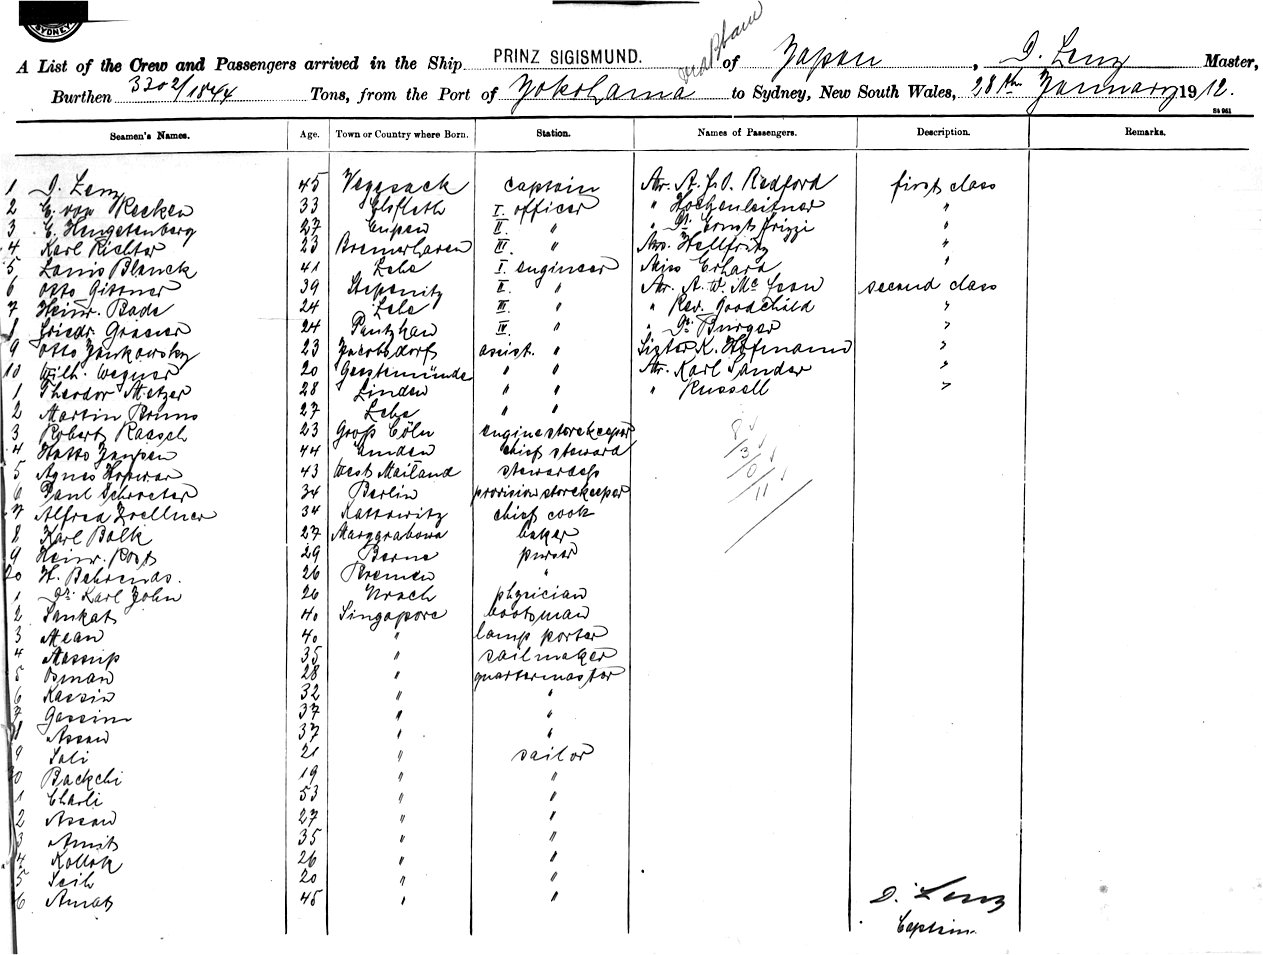 SYDNEY
A List of the Crew and Passengers arrived in the Ship PRINZ SIGISMUND. of Japan, D. Lenz Master,
Burthen 3302/1844 Tons, from the Port of Yokohama to Sydney, New South Wales, 28th January 1912.
Seamen's Names. Age. Town or Country where Born. Station. Names of Passengers. Description. Remarks.
1 D. Lenz 45 Vegesack captain Mr. A. J. O. Redford first class
2 E. von Recken 33 Elsfleth I. officer " Hochenleitner "
3 E. Hengstenberg 27 Eupen II. " " Dr. Ernst Frizzi "
4 Karl Richter 23 Bremerhaven III. " Mrs. Hellfritz "
5 Louis Blanck 41 Lehe I. engineer Miss Erhard "
6 Otto Gittner 39 Stepenitz II. " Mr. A. W. Mc second class
7 Heinr. Bade 24 Lehe III. " " Rev. Goodchild "
8 Friedr. Graeser 24 IV. " " Dr. Burger "
9 Otto Jankowsky 23 Jacobsdorf assist. " Sister K. Hofmann "
10 Wilh. Wegner 20 Geestemünde " " Mr. Karl Sander "
1 Theodor Metzer 28 Linden " " " Russell "
2 Martin Bruns 27 Lehe " "
3 Robert Raasch 23 Groß Cöln enginestorekeeper 8
4 Hatto Janssen 44 Emden chief steward 3
5 Agnes 43 West Mailand stewardess 0
6 Paul Schroeter 34 Berlin provision storekeeper 11
7 Alfred Zoellner 34 Kattowitz chief cook
8 Karl Balk 27 Marggrabowa baker
9 Heinr. Rost 29 Berne purser
20 H. Behrends. 26 Bremen "
1 Dr. Karl John 26 Urach physician
2 Sankat 40 Singapore bootsman
3 Mean 40 " lamp porter
4 Massup 35 " sailmaker
5 Osman 28 " quartermaster
6 Kassin 32 " "
7 Gassim 37 " "
8 Assan 37 " "
9 Sali 21 " sailor
30 Backchi 19 " "
1 Charli 53 " "
2 Assan 27 " "
3 Amit 35 " "
4 Kollok 26 " "
5 Seih 20 " "
6 Amat 45 " "
D. Lenz
Captain.